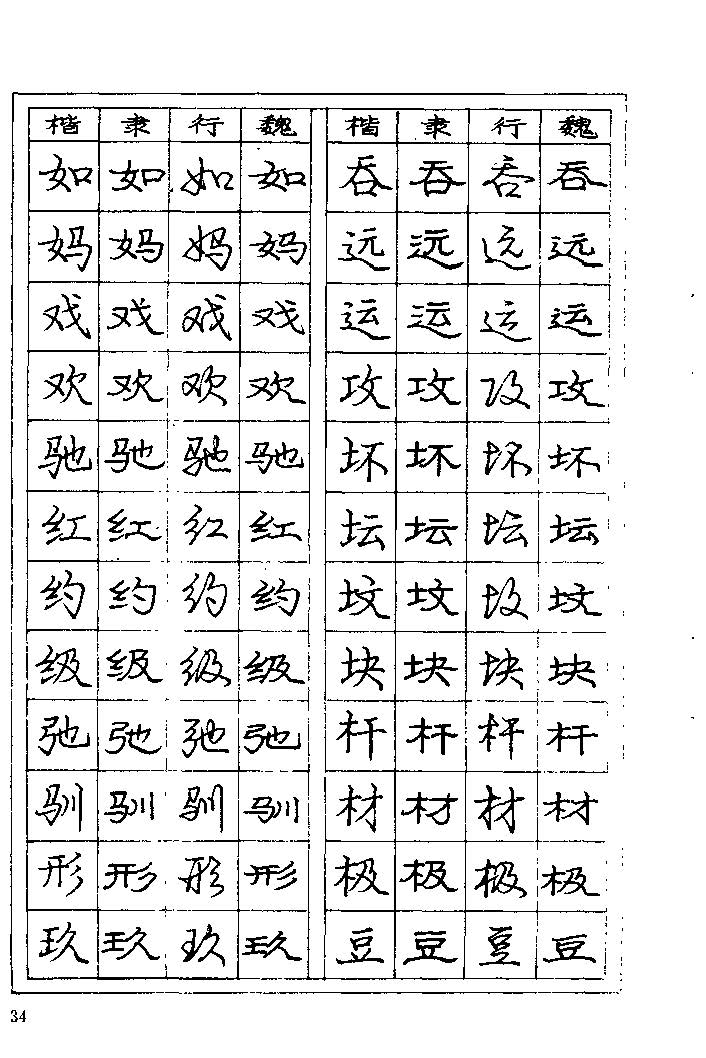 楷 隶 行 魏 楷 隶 行 魏
如 如 如 如 吞 吞 吞 吞
妈 妈 妈 妈 远 远 远 远
戏 戏 戏 戏 运 运 运 运
欢 欢 欢 欢 攻 攻 攻 攻
驰 驰 驰 驰 坏 坏 坏 坏
红 红 红 红 坛 坛 坛 坛
约 约 约 约 坟 坟 坟 坟
级 级 级 级 块 块 块 块
弛 弛 弛 弛 杆 杆 杆 杆
驯 驯 驯 驯 材 材 材 材
形 形 形 形 极 极 极 极
玖 玖 玖 玖 豆 豆 豆 豆
34